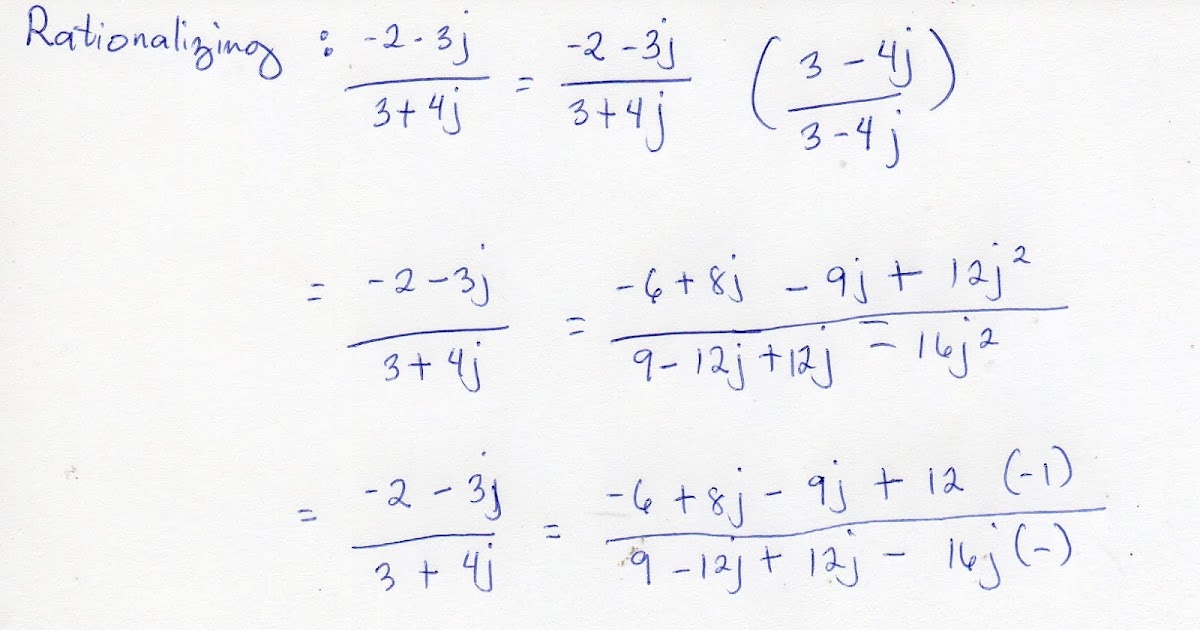 Rationalizing : -2 - 3j / 3 + 4j = -2 - 3j / 3 + 4j ( 3 - 4j / 3 - 4j )
= -2 - 3j / 3 + 4j = -6 + 8j - 9j + 12j² / 9 - 12j + 12j - 16j²
= -2 - 3j / 3 + 4j = -6 + 8j - 9j + 12 (-1) / 9 - 12j + 12j - 16j (-)